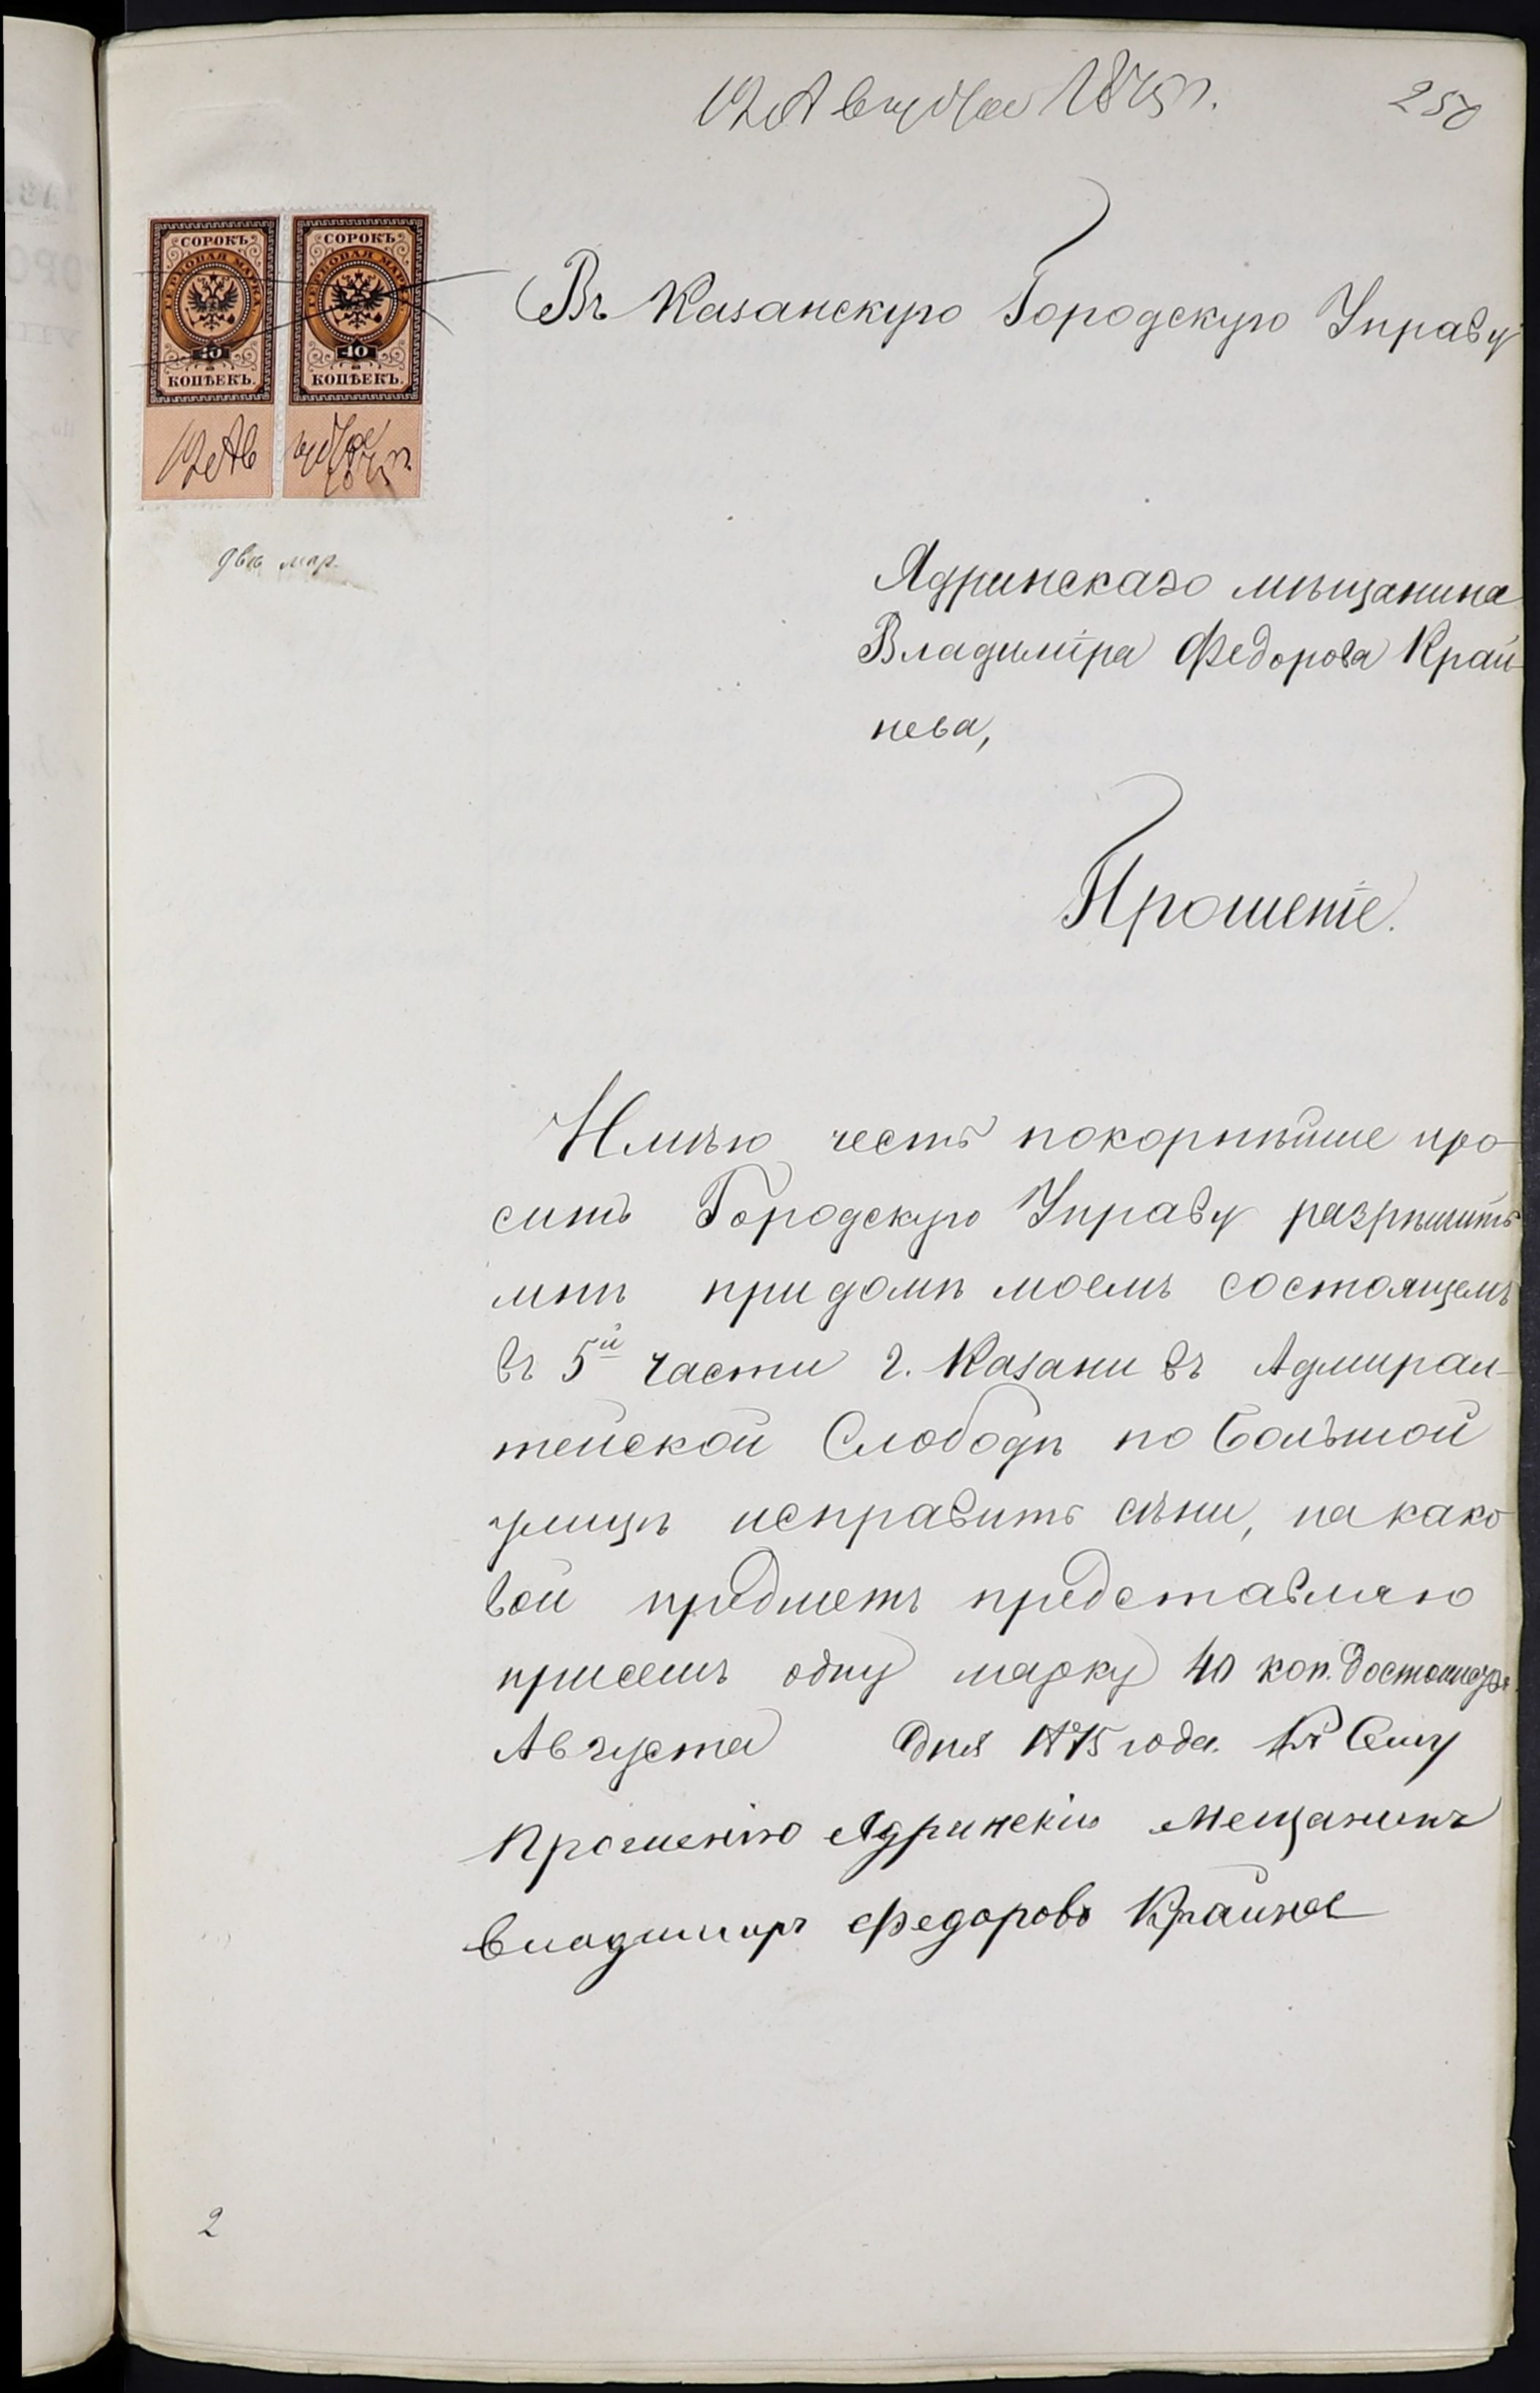 12 Августа 1875 г.
250
СОРОКЪ
ГЕРБОВАЯ МАРКА
40
КОПѢЕКЪ.
СОРОКЪ
ГЕРБОВАЯ МАРКА
40
КОПѢЕКЪ.
12 Ав
густа
1875 г.
двѣ мар.
Въ Казанскую Городскую Управу
Ядринскаго мѣщанина
Владиміра Федорова Край-
нева,
Прошеніе.
Имѣю честь покорнѣйше про-
сить Городскую Управу разрѣшить
мнѣ при домѣ моемъ состоящемъ
въ 5й части г. Казани въ Адмирал-
тейской Слободѣ по Большой
улицѣ исправить сѣни, на како
вой предметъ представляю
присемъ одну марку 40 коп. достоинства.
Августа дня 1875 года. Къ Сему
Прошенію Ядринскій Мещанинъ
Владимиръ Федоровъ Крайнев
2